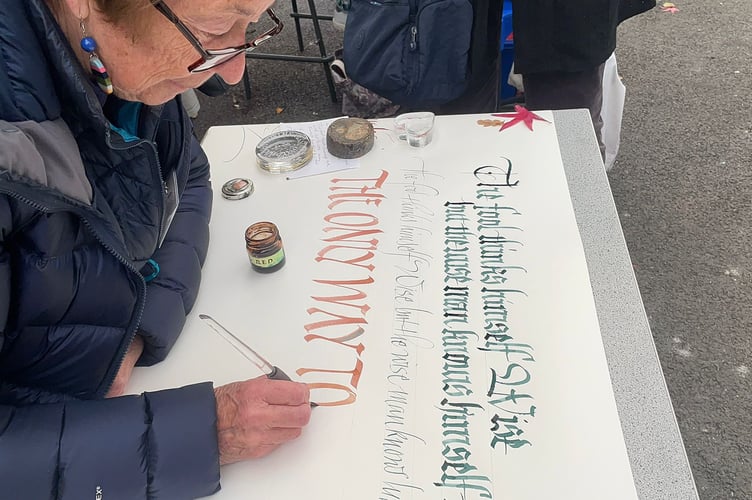 The fool thinks himself Wise
but the wise man knows himself
The fool thinks himself Wise but the wise man knows
THE ONLY WAY TO
RED